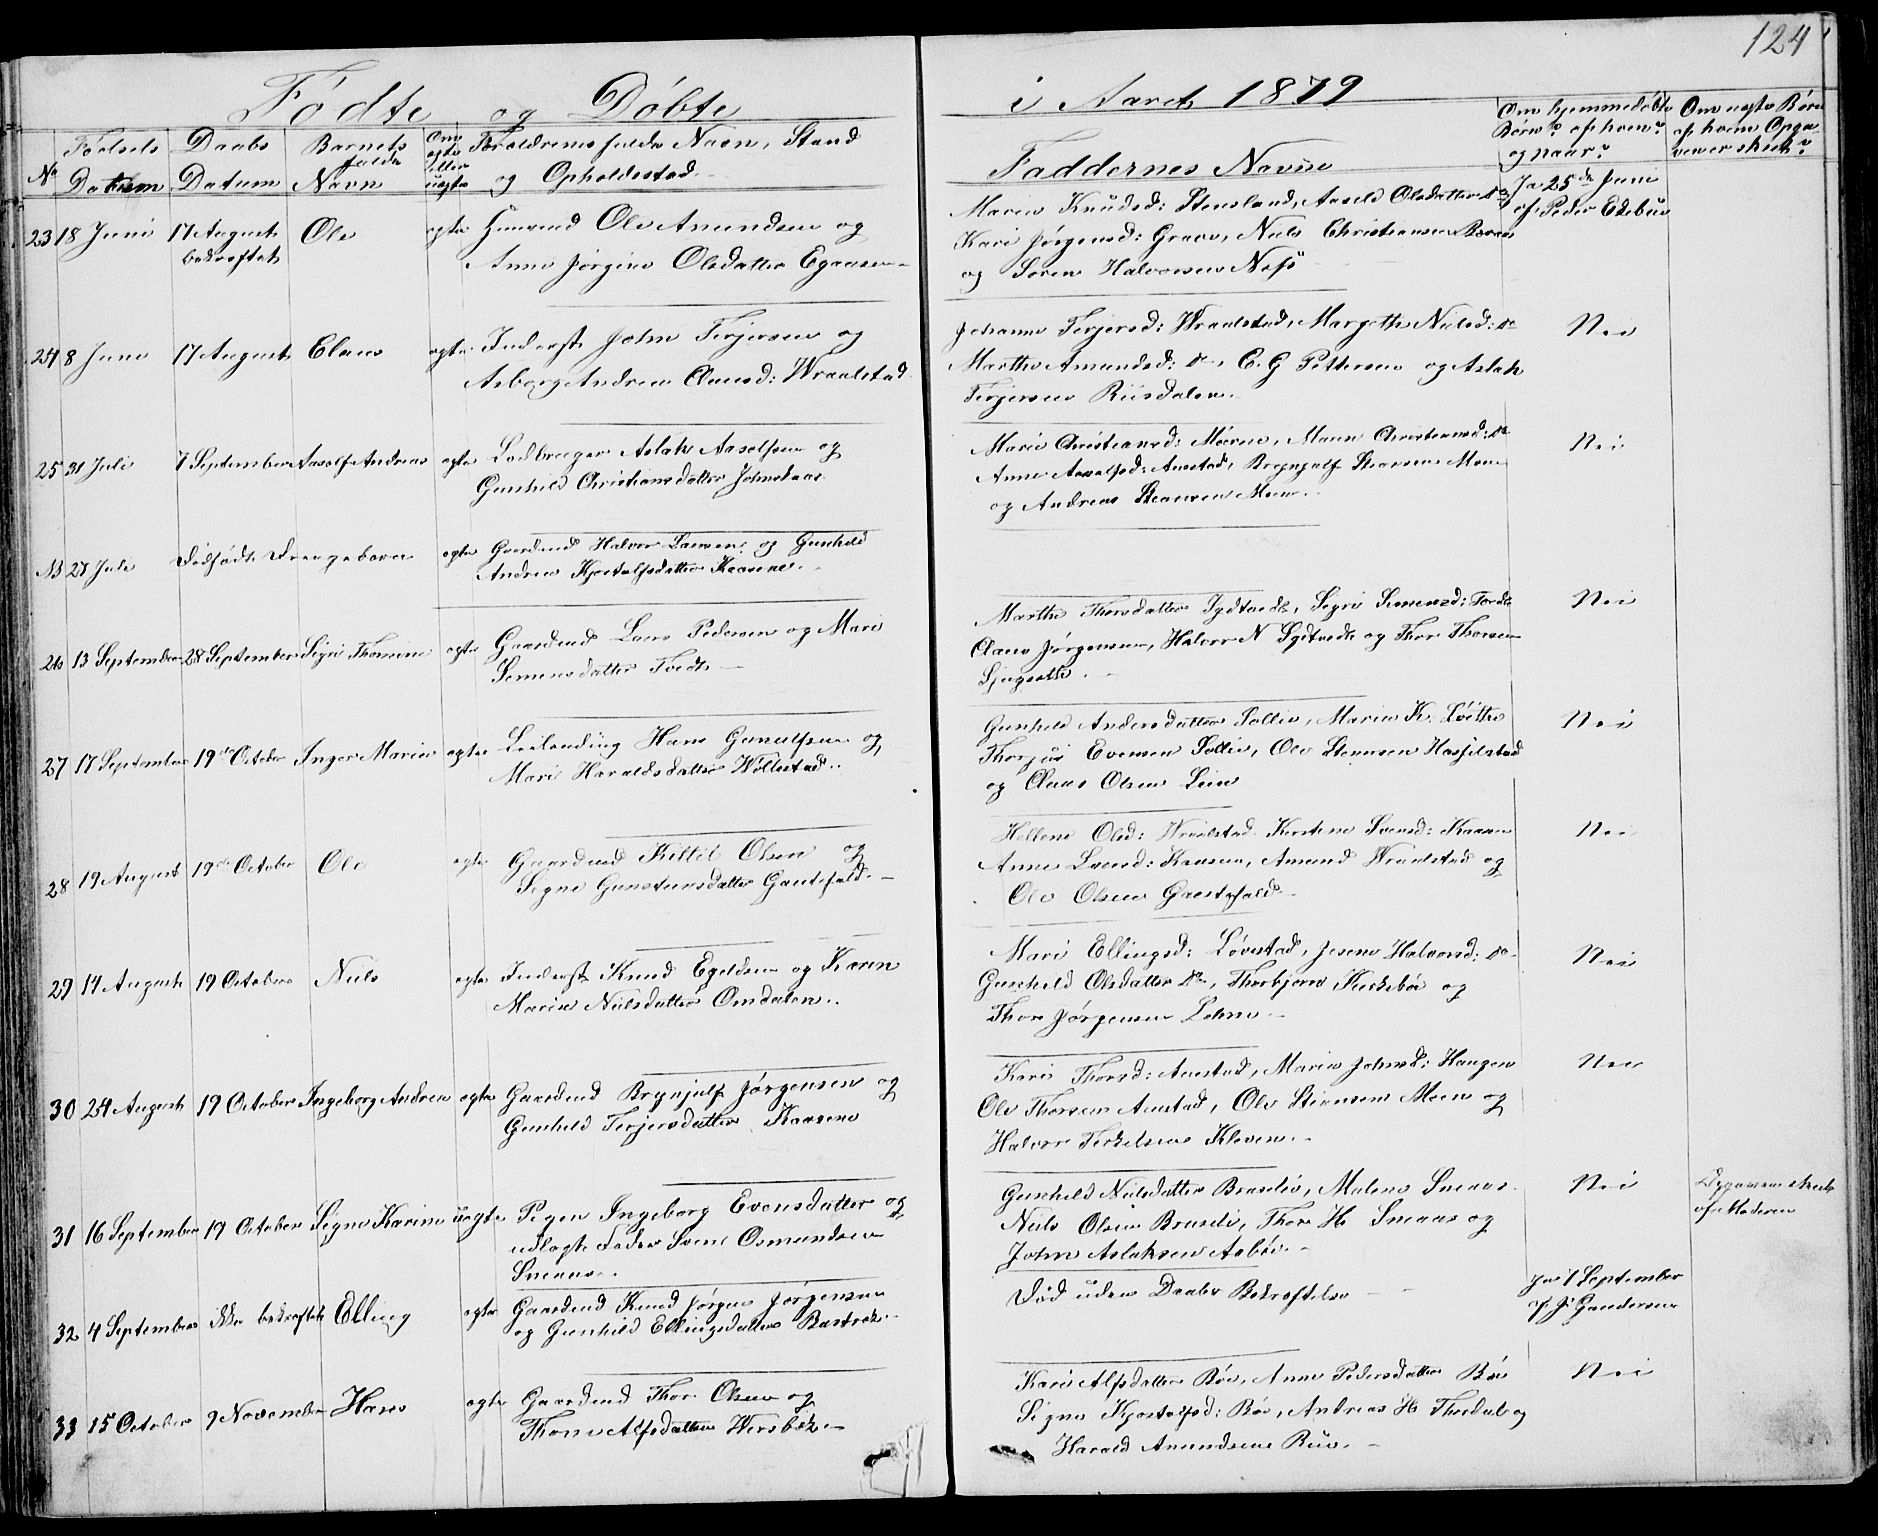 124
Födte og Döbte i Aaret 1879
No
Födsels Datum
Daabs Datum
Barnets fulde Navn
Om egte eller uegte
Foroldrenes fulde Navn, Stand og Opholdsted
Faddernes Navne
Om hjemmedöbte Börn? af hvem? og naar?
Om uegte Börn af hvem Opgaven er skeet?
23 18 Juni 17 August bekræftet Ole egte Huusmd Ole Amundsen og
Anne Jörgine Olsdatter
Maren Knudsd: Stensland, Aaseld Olsdatter do
Kari Jörgensd: Graver, Niels Christiansen
og Sören Halvorsen Næs
Ja 25de Juni
af Peder
24 8 Juni 17 August Claus egte Inderst John Terjersen og
Asborg Andrea Clausd: Wraalstad
Johanne Terjersd: Wraalstad, Margethe Nielsd: do
Marthe Amundsd: do, C. G Pettersen og Aslak
Terjersen Riisdalen.
Nei
25 31 Juli 7 September Aasolf Andreas egte Aslak Aasolfsen og
Gunhild Christiansdatter Johnskaas
Marie Christiansd: Moen, Maren Christiansd: do
Anne Aasolfsd: Aaestad, Brynjulf Stiansen Moen
og Andreas Steansen Moen.
Nei
27 Juli Dödfödt Drengebarn egte Gaardmd Halvor Larsen og Gunhild
Andrea Kjostolfsdatter Kaasene.
26 13 September 28 September Signe Thorine egte Gaardmd Lars Pedersen og Mari
Simensdatter Tvedt
Marthe Thorsdatter Sydtvedt, Segri Simensd: Tvedt
Claus Jörgensen, Halvor N Sydtvedt og Thor Thorsen
Nei
27 17 September 19de October Inger Marie egte Leilænding Hans Gunulfsen og
Mari Haraldsdatter Wöllestad..
Gunhild Andersdatter Sollie, Maria K.
Evensen Sollie, Ole Stensen Hasselstad
og Claus Olsen Lien
Nei
28 19 August 19de October Ole egte Gaardmd Kittil Olsen og
Signe Gunstensdatter Gautefald.
Hellene Olsd: Wraalstad Kirstine Svensd: Kaasen
Anne Larsd: Kaasen, Amund Wraalstad og
Ole Olsen Gautefald
Nei
29 14 August 19 October Niels egte Inderst Knud Egeldsen og Karen
Maria Nielsdatter Omdalen..
Mari Ellingsd: Lövstad, Halvorsd: do
Gunhild Olsdatter do, Thorbjörn og
Thor Jörgensen
Nei
30 24 August 19 October Ingeborg Andrea egte Gaardmd Brynjulf Jörgensen og
Gunhild Terjersdatter Kaasene
Karis Thorsd: Aaestad, Maria Johnsd: Haugen
Ole Thorsen Aaestad, Ole Stiansen Moen og
Halvor Terkelsen Kleven.
Nei
31 16 September 19 October Signe Karine uegte Pigen Ingeborg Evensdatter og
udlagte Fader Sven Osmundsen
Sneaas..
Gunhild Nielsdatter Brasilie, Malene Sneaas
Niels Olsen Brasilie, Thor H. Sneaas og
John Aslaksen Aasböe.
Nei
Opgaven skeet
af Moderen
32 4 September ikke bekræftet Elling egte Gaardmd Knud Jörgen Jörgensen
og Gunhild Ellingsdatter
Död uden Daabs Bekræftelse
Ja 7 September
af J. Gundersen
33 15 October 9 November Hans egte Gaardmd Thor Olsen og
Thone Alfsdatter
Kari Alfsdatter Böe, Anne Pedersdatter Böe
Signe Kjostolfsd: Böe, Andreas H. Thordal og
Harald Amundsen Böe.
Nei